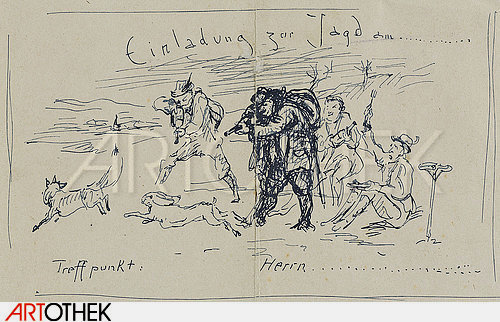 Einladung zur Jagd am ............
Treffpunkt: Herrn ........................
ARTOTHEK
ARTOTHEK